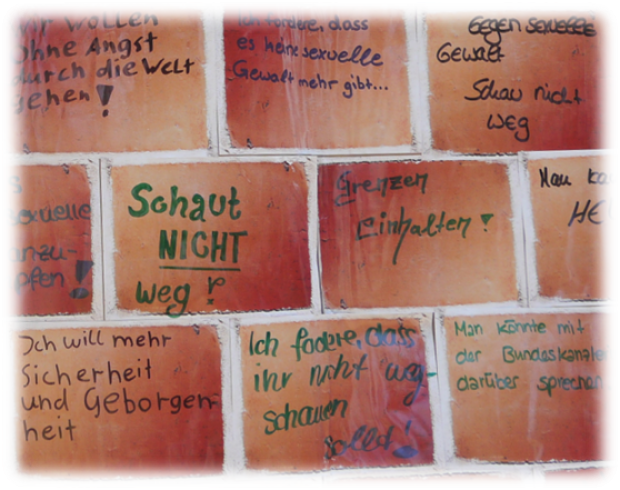 wir wollen
ohne Angst
durch die Welt
gehen!
Ich fordere, dass
es keine sexuelle
Gewalt mehr gibt...
Gegen sexuelle
Gewalt
Schau nicht
weg
sexuelle
!
Schaut
NICHT
weg!
Grenzen
Einhalten!
Man
Ich will mehr
Sicherheit
und Geborgen-
heit
Ich fodere, dass
ihr nicht weg-
schauen
sollt!
Man könnte mit
der Bundeskanzle
darüber sprechen